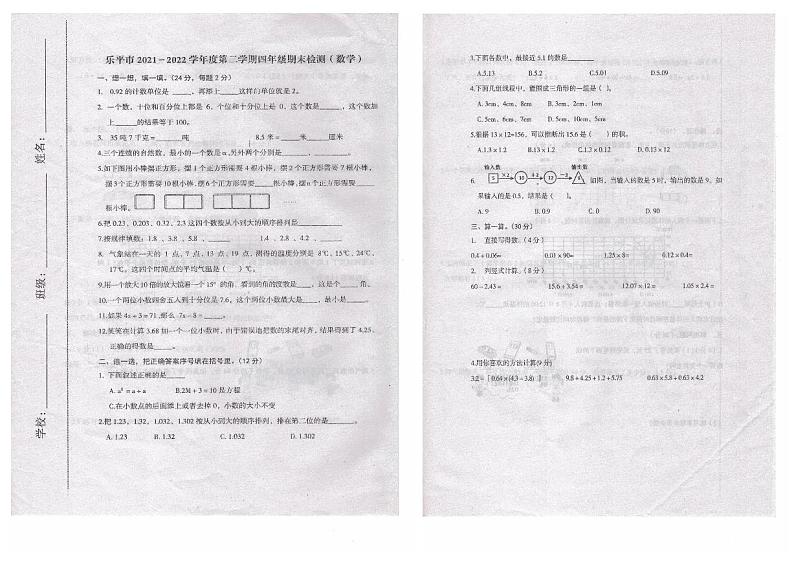 乐平市 2021-2022 学年度第二学期四年级期末检测（数学）
一、想一想，填一填。（24 分，每题 2 分）
1. 0.92 的计数单位是 _____，再添上_____这样的单位就是 2。
2. 一个数，十位和百分位上都是 6，个位和十分位上是 0，这个数是_____，这个数加
上_____的结果等于 100。
3. 35 吨 7 千克 = _____吨 8.5 米 = _____米_____厘米
4.三个连续的自然数，最小的一个数是 a,另外两个分别是_____，_____。
5.如下图用小棒摆正方形，摆 1 个正方形需要 4 根小棒，摆 2 个正方形需要 7 根小棒，
摆 3 个正方形需要 10 根小棒，摆 6 个正方形需要_____根小棒，摆 n 个正方形需要_____
根小棒。 ……
6.把 0.23、0.203、0.32、2.3 这四个数按从小到大的顺序排列是_____
7.按规律填数：1.8 、3.8 、5.8 、_____ 1.4 、2.8 、4.2 、_____
8. 气象站在一天的 1 点，7 点，13 点，19 点，测得的温度分别是 8℃、15℃、24℃、
17℃。这四个时间点的平均气温是（ ）℃。
9.用一个放大 10 倍的放大镜看一个 15° 的角，看到的角的度数是_____，这是个_____角。
10.一个两位小数四舍五入到十分位是 7.6，这个两位小数最大是_____，最小是_____。
11.如果 4x + 3 = 71 ,那么 7x - 8 = _____。
12.笑笑在计算 3.68 加一个一位小数时，由于错误地把数的末尾对齐，结果得到了 4.25，
正确的得数是_____。
二、选一选，把正确答案序号填在括号里。（12 分）
1. 下面叙述正确的是_____
A. a² = a + a B.2M + 3 = 10 是方程
C.在小数点的后面添上或者去掉 0，小数的大小不变
2.把 1.23、1.32、1.032、1.302 按从小到大的顺序排列，排在第二位的是_____。
A. 1.23 B. 1.32 C. 1.032 D. 1.302
学校： 班级： 姓名：
3.下面各数中，最接近 5.1 的数是_____
A.5.13 B.5.2 C.5.01 D.5.09
4.下面几组线段中，能围成三角形的一组是（ ）。
A. 3cm，4cm，8cm B. 3cm，2cm，1cm
C. 5cm，6cm，7cm D. 5cm，10cm，5cm
5.根据 13 × 12=156，可以推断出 15.6 是（ ）的积。
A.1.3 × 1.2 B.13 × 1.2 C.1.3 × 0.12 D. 0.13 × 12
输入数 输出数
6. 5 ×2 10 +2 12 -3 9 如图，当输入的数是 5 时，输出的数是 9，如
果输入的是 0.5，结果是（ ）。
A. 9 B. 0.9 C. 0 D. 90
三、算一算。（30 分）
1. 直接写得数。（4 分）
0.4 + 0.06= 0.01 × 90= 1.25 × 8= 0.12 × 0.4=
2. 列竖式计算。（8 分）
60 - 2.43 = 15.6 + 3.54 = 12.07 × 12 = 1.05 × 2.4 =
4.用你喜欢的方法计算(9 分)
9.8 + 4.25 + 1.2 + 5.75 0.63 × 5.8 + 0.63 × 4.2